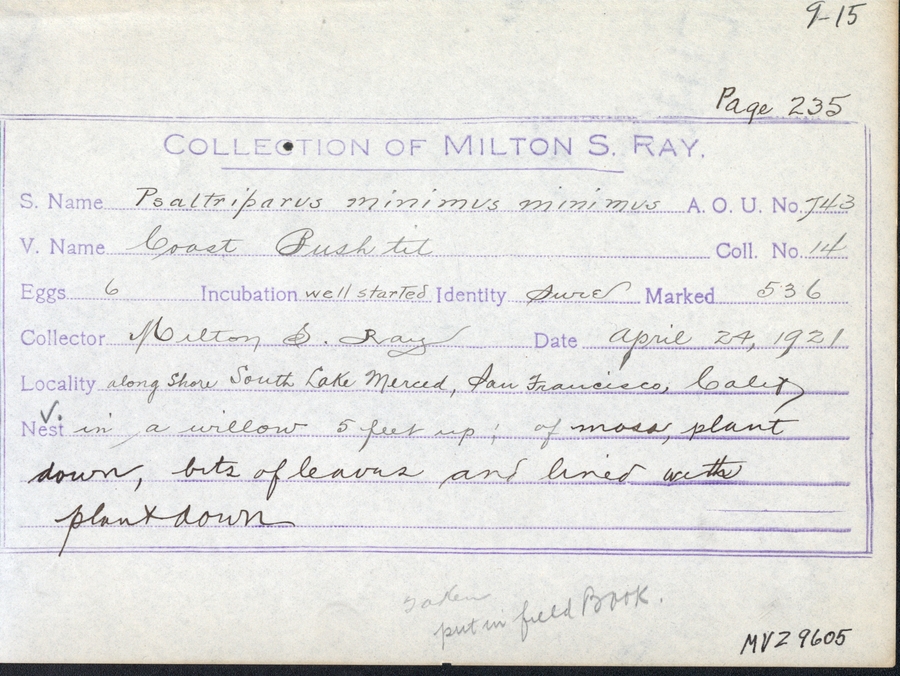 9-15
Page 235
COLLECTION OF MILTON S. RAY.
S. Name Psaltriparus minimus minimus A. O. U. No. 743
V. Name Coast Bush tit Coll. No. 14
Eggs 6 Incubation well started Identity Sure Marked 536
Collector Milton S. Ray Date April 24, 1921
Locality along Shore South Lake Merced, San Francisco, Calif
V.
Nest in a willow 5 feet up; of moss, plant
down, bits of leaves and lined with
plant down
taken
put in field Book.
MVZ 9605